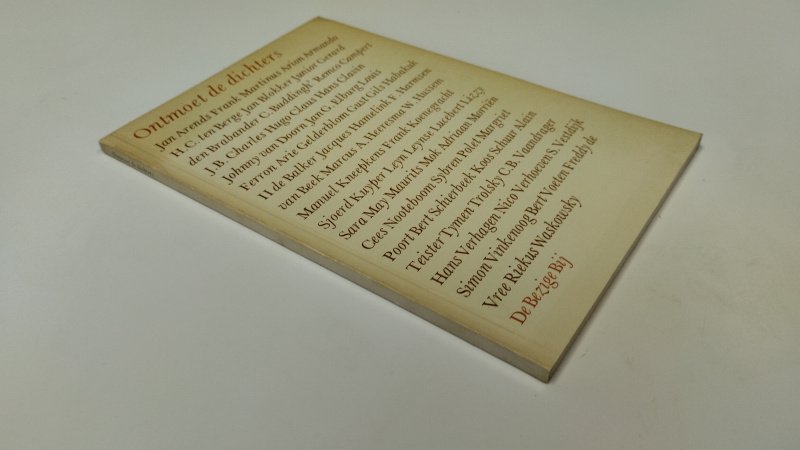 Ontmoet de dichters
Jan Arends Frank Martinus Arion Armando
H.C. ten Berge Jan Blokker Junior Gerard
den Brabander C. Buddingh' Remco Campert
J.B. Charles Hugo Claus Hans Clavin
Johnny van Doorn Jan G. Elburg Louis
Ferron Arie Gelderblom Gust Gils Habakuk
II de Balker Jacques Hamelink F. Harmsen
van Beek Marcus A. Heeresma W. Hussem
Manuel Kneepkens Frank Koenegracht
Sjoerd Kuyper Leyn Leynse Lucebert Lizzy
Sara May Maurits Mok Adriaan Morriën
Cees Nooteboom Sybren Polet Margriet
Poort Bert Schierbeek Koos Schuur Alain
Teister Tymen Trolsky C.B. Vaandrager
Hans Verhagen Nico Verhoeven S. Vestdijk
Simon Vinkenoog Bert Voeten Freddy de
Vree Riekus Waskowsky
De Bezige Bij